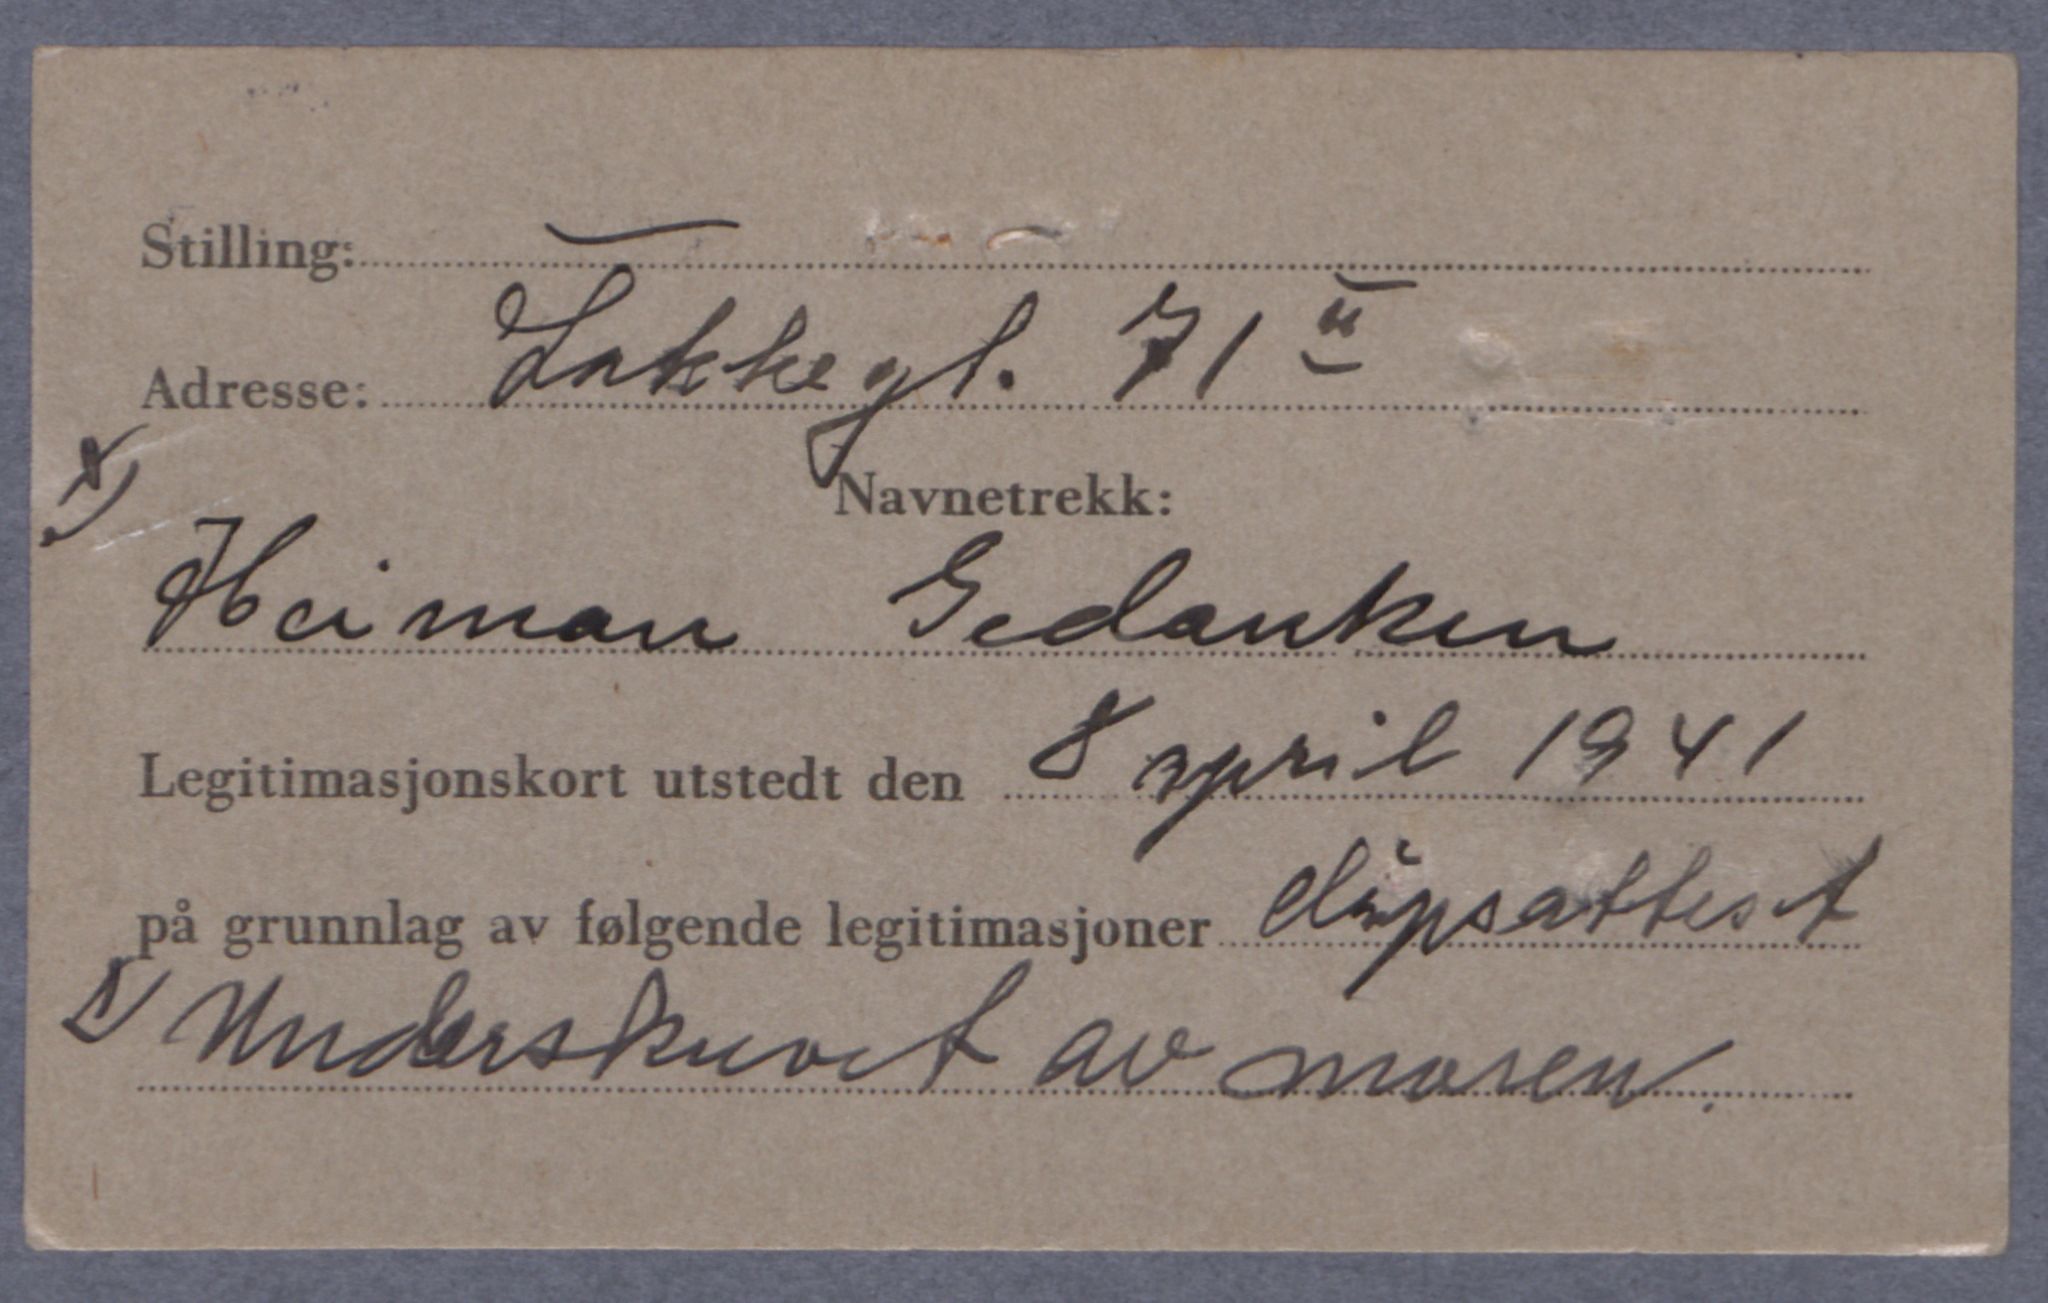 Stilling: —
Adresse: Lakkegt. 71 II
Navnetrekk:
x) Heiman Gedanken
Legitimasjonskort utstedt den 8 april 1941
på grunnlag av følgende legitimasjoner dåpsattest
x) Underskrevet av moren.